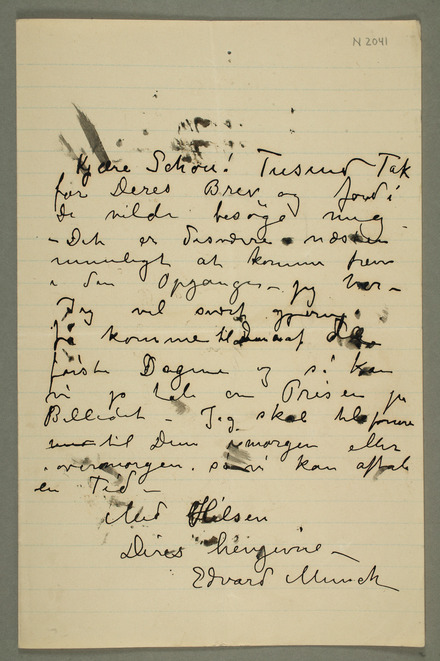 N 2041
Kjære Schou! Tusind Tak
for Deres Brev og fordi
De vilde besöge mig
– Det er desværre næsten
umuligt at komme frem
i den Opgangen jeg har –
Jeg vil svært gjerne
få komme til Dem en af de
förste Dagene og så kan
vi jo tale om Prisen på
Billedet – Jeg skal telefonere
til Dem imorgen eller
overmorgen så vi kan aftale
en Tid –
Med Hilsen
Deres hengivne –
Edvard Munch